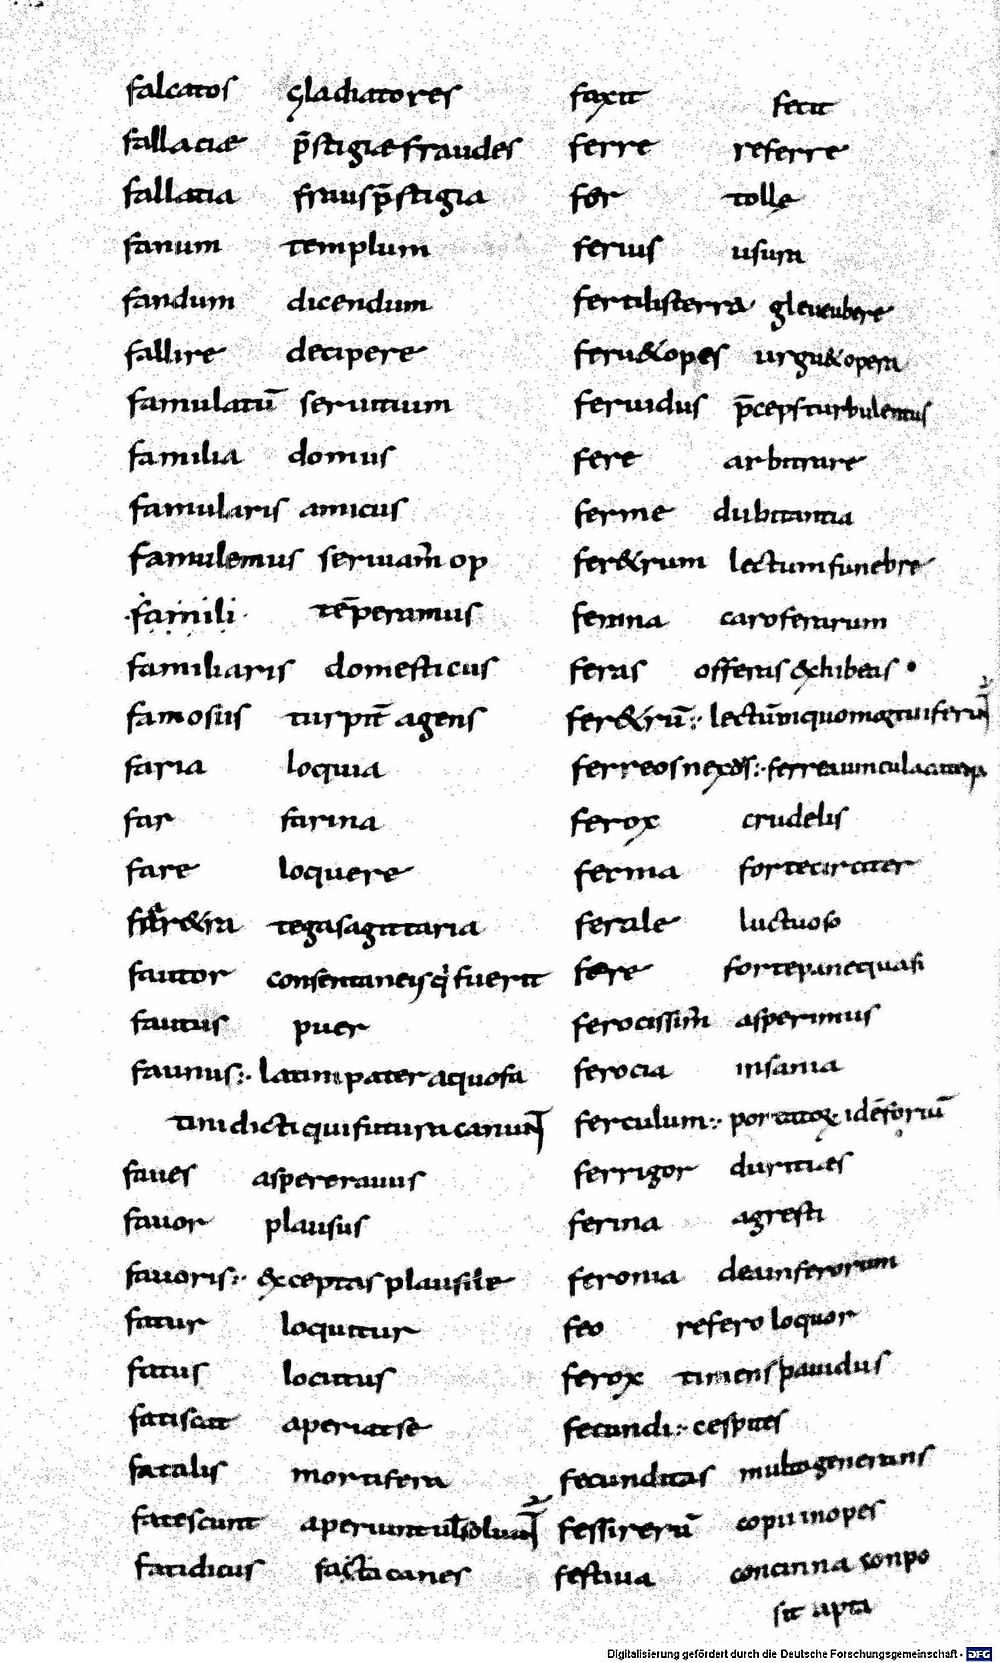 falcatos gladiatores
fallaciæ p̄stigiæ fraudes
fallatia fraus p̄stigia
fanum templum
fandum dicendum
fallire decipere
famulatū seruitium
familia domus
famularis amicus
famulemus seruam̄ op
famili tēperamus
familiaris domesticus
famosus turpit̄ agens
faria loquia
far farina
fare loquere
far&ra tega sagittaria
fautor consentaneis q fuerit
fautus puer
faunus:· latini pater a quo fa
tini dicti qui futura canun̄t
faues aspererauus
fauor plausus
fauoris:· exceptas plausile
fatur loquitur
fatus locutus
fatiscat aperiat se
fatalis mortifera
fatescunt aperiunt ul soluunt
fatidicus facta canes
faxit fecit
ferre referre
fer tolle
ferius usura
fertilis terra gleue ubere
feru&opes urgu&opera
feruidus p̄ceps turbulentus
fere arbitrare
ferme dubitantia
fer&rum lectum funebre
ferina caro ferarum
feras offeras exhibeas
fer&rū:· lectū in quo mortui ferun̄t
ferreos nexos:· ferrea uincula
ferox crudelis
ferma forte circiter
ferale luctuoso
fere forte pane quasi
ferocissim̄ asperimus
ferocia insania
ferculum:· idē foriū
ferrigor duritiæs
ferina agresti
feronia dea inferorum
feo refero loquor
ferox timens pauidus
fecundi:· cespites
fecunditas multa generans
fessi rerū copia inopes
festiua concinna conpo
sit apta
Digitalisierung gefördert durch die Deutsche Forschungsgemeinschaft - DFG